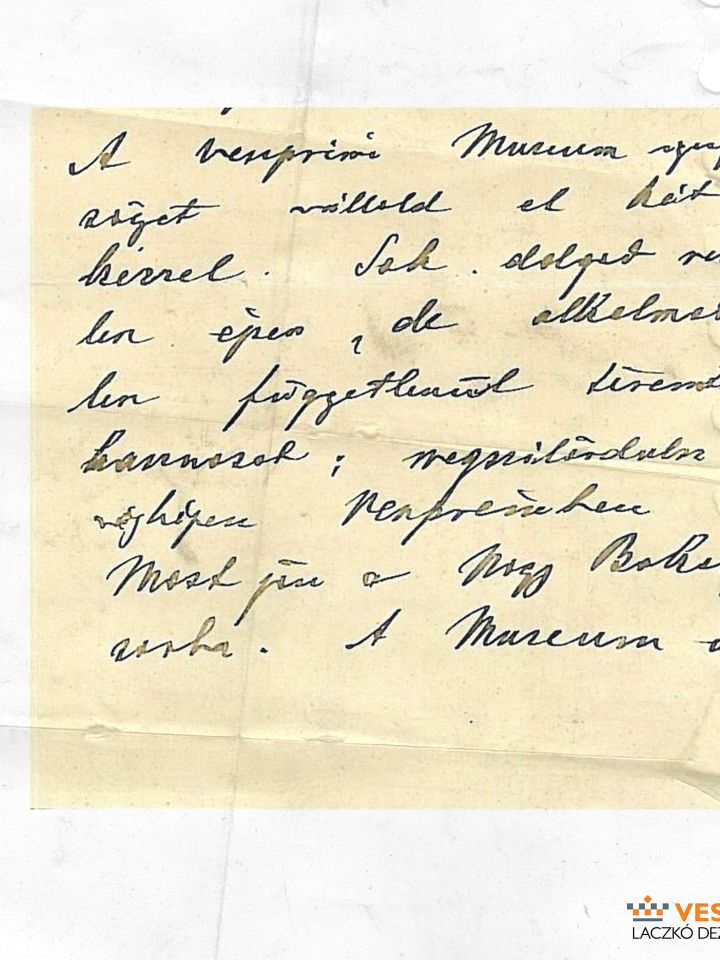 A veszprémi Museum
söget vállold el hát
kézzel. Sok dolgod
len épen, de alkalma
len függetlenül terem
hasznosat; megszilárdulsz
végképen Veszprémben
Most jön a nagy Bako
sorba. A Museum
VES
LACZKÓ DEZ